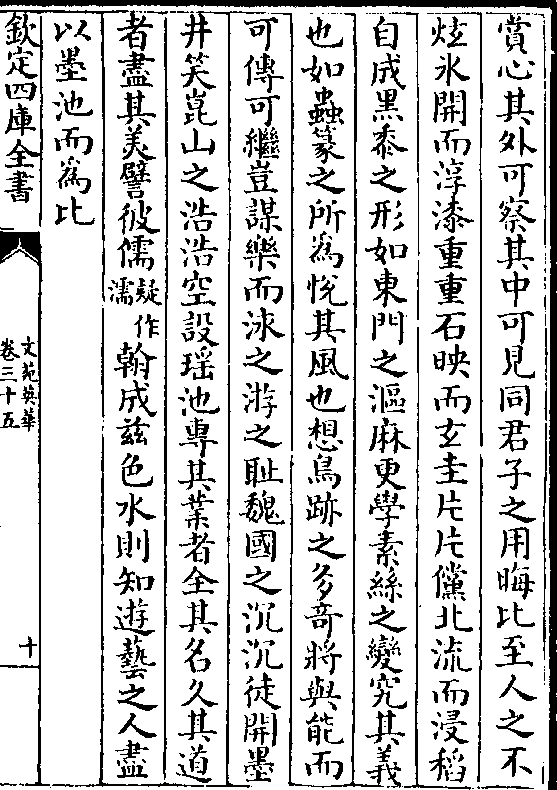 賞心其外可察其中可見同君子之用晦比至人之不
炫氷開而淳漆重重石映而玄圭片片儻北流而浸稻
自成黒黍之形如東門之漚麻更學素絲之變究其義
也如蟲篆之所為悅其風也想鳥跡之多奇將與能而
可傳可繼豈謀樂而泳之游之耻魏國之沉沉徒開墨
井笑崑山之浩浩空設瑶池專其業者全其名久其道
者盡其美譬彼儒疑作濡翰成兹色水則知遊藝之人盡
以墨池而爲比
欽定四庫全書
文苑英華
卷三十五
十